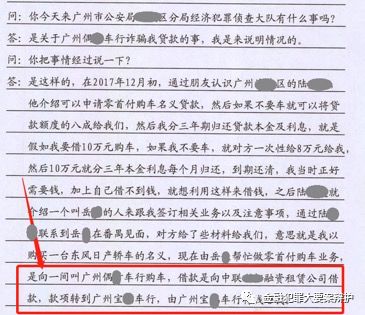 问：你今天来广州市公安局 区分局经济犯罪侦查大队有什么事吗？
答：是关于广州偶 车行诈骗我贷款的事，我是来说明情况的。
问：你把事情经过说一下？
答：是这样的，在2017年12月初，通过朋友认识广州 区的陆
他介绍可以申请零首付购车名义贷款，然后如果不要车就可以将贷
款额度的八成给我们，然后我分三年期归还贷款本金及利息，就是
假如我要借10万元购车，如果我不要车，就对方一次性给8万元给我，
然后10万元就分三年本金利息每个月归还，到期还清，我当时正好
需要钱，加上自己借不到钱，就想利用这样来借钱，之后陆 就
介绍一个叫岳 的人来跟我签订相关业务以及注意事项，通过陆
联系到岳 在番禺见面，对方给了些材料给我们，意思就是我以
购买一台东风日产轿车的名义，现在由岳 帮忙做零首付购车业务，
是向一间叫广州偶 车行购车，借款是向中联 融资租赁公司借
款，款项转到广州宝 车行，由广州宝 车行
金融犯罪大要案辩护